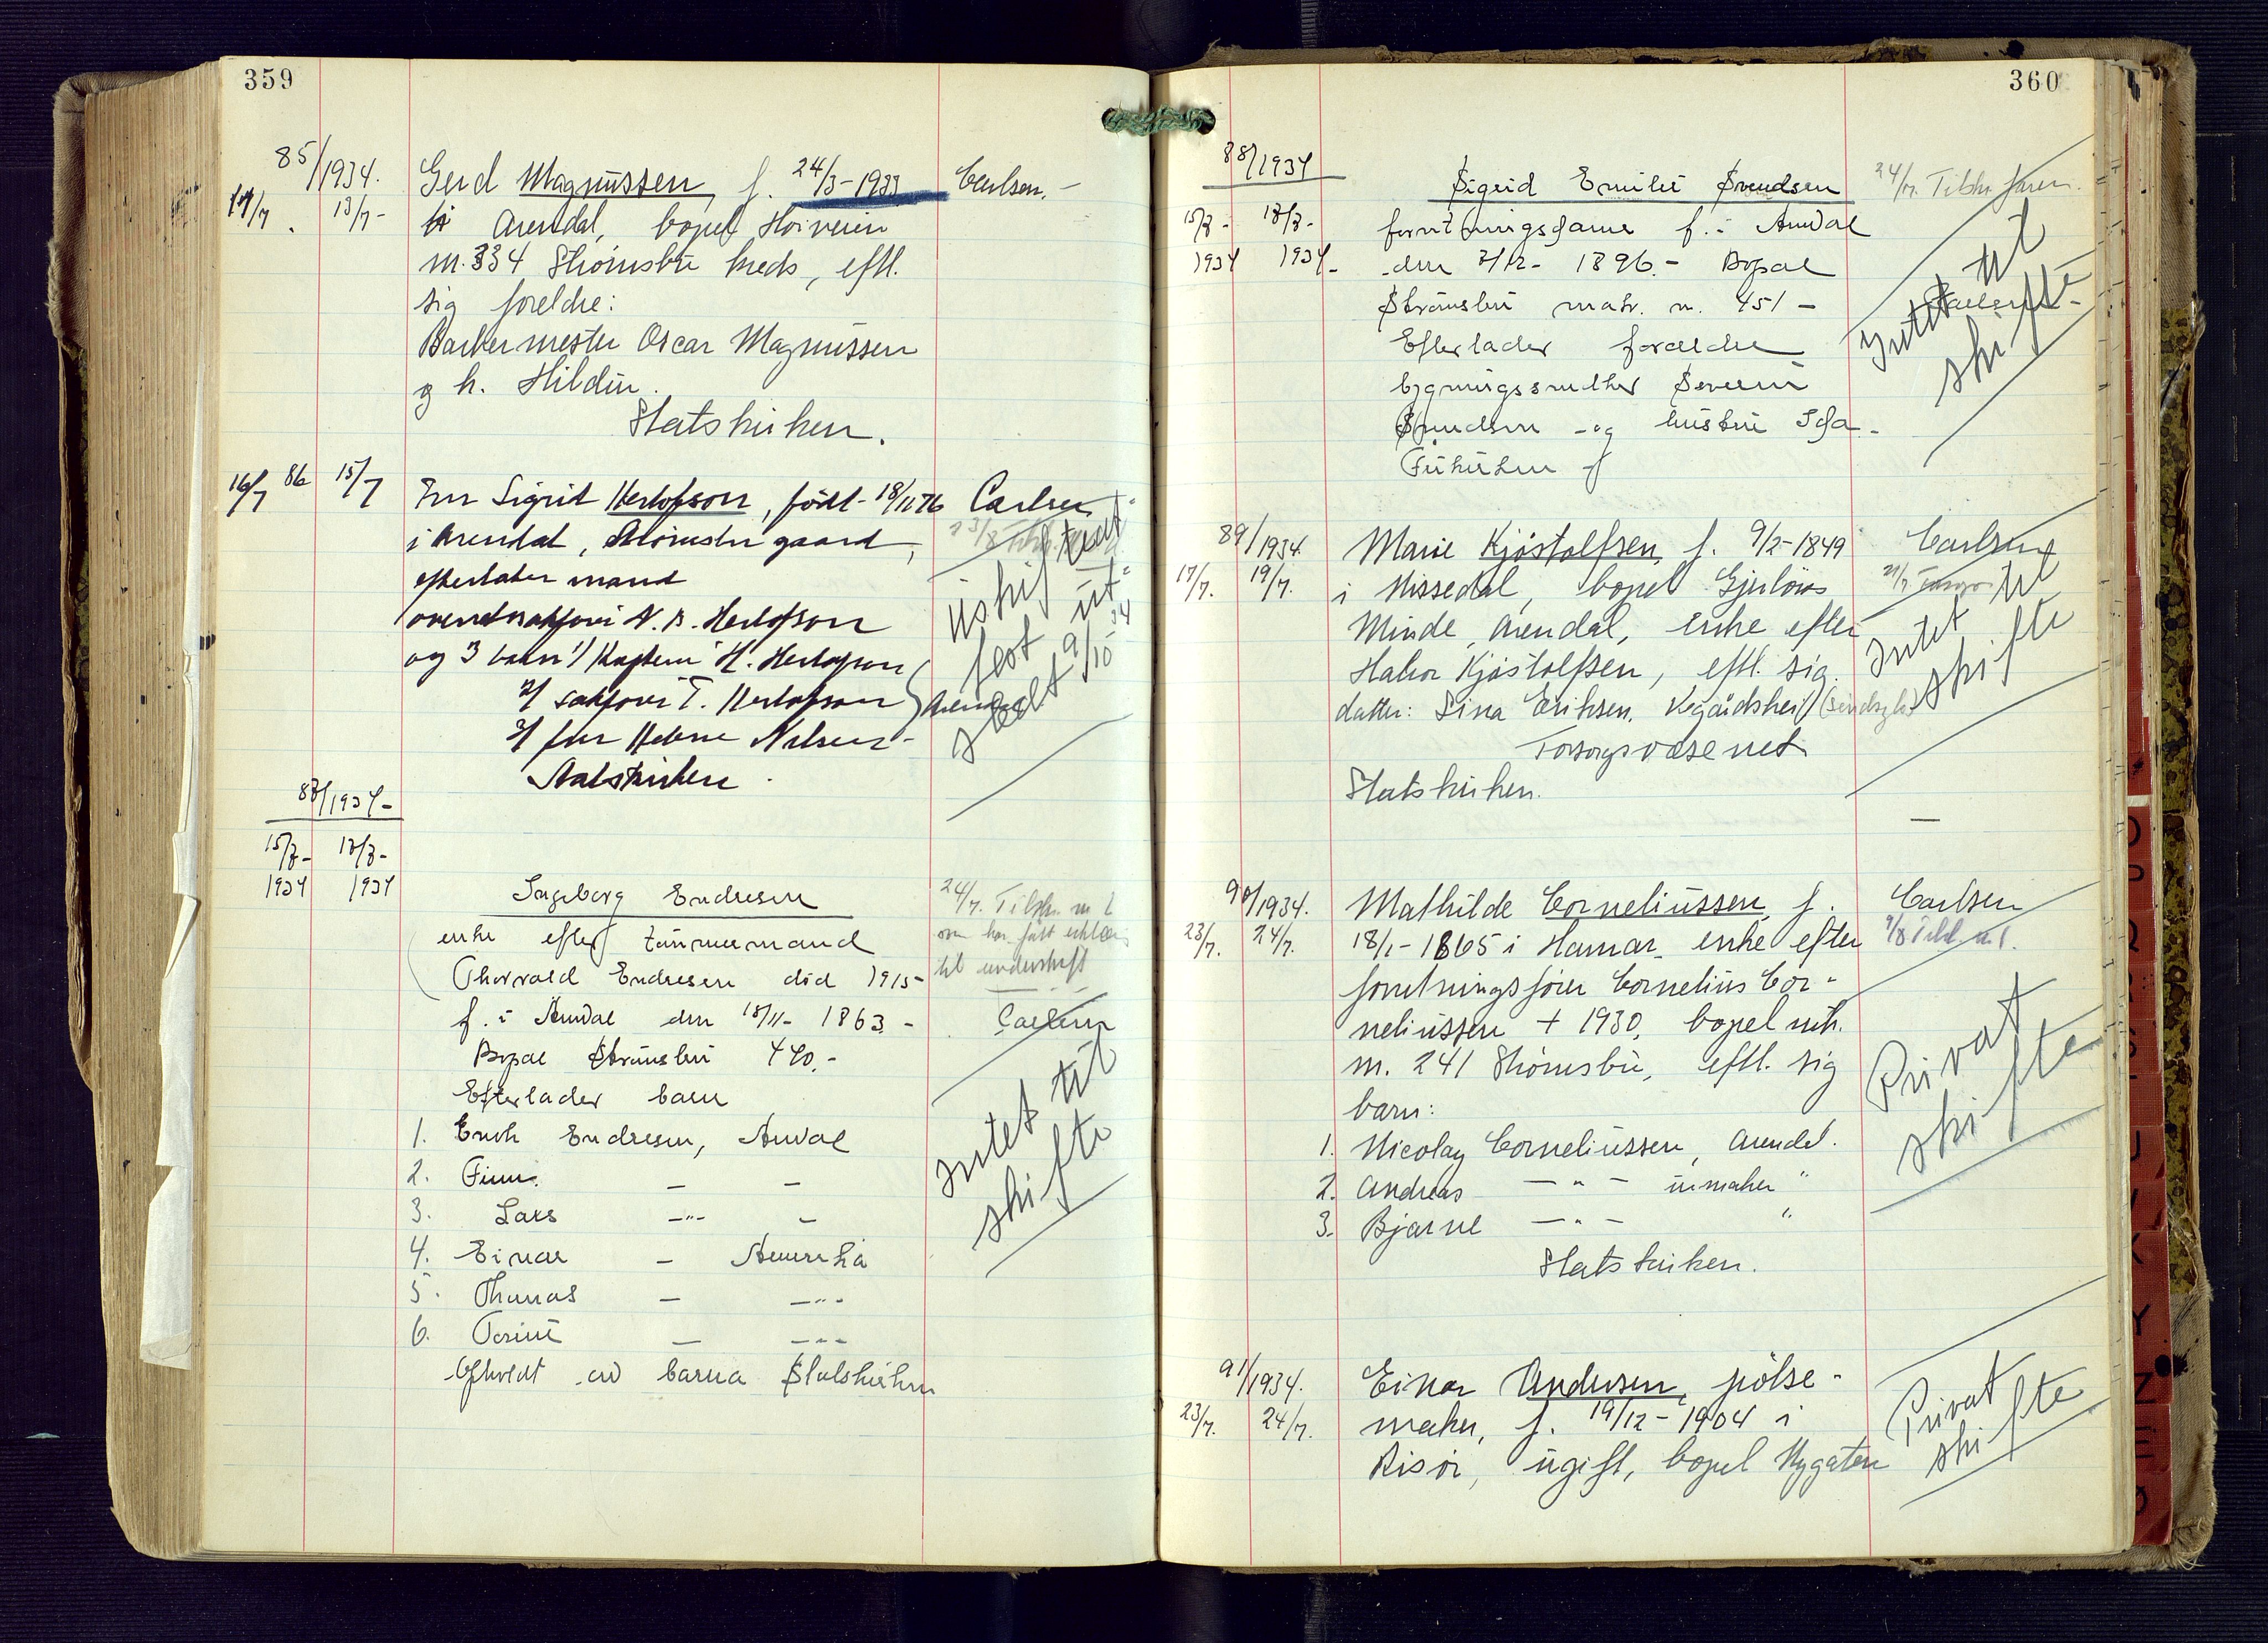 359
85/1934.
14/7. 13/7-
Gerd Magnussen, f. 24/3-1933
i Arendal, bopel Höiveien
nr. 334 Strömsbu kreds, eftl.
sig foreldre:
Barkermester Oscar Magnussen
og h. Hildur.
Statskirken.
Carlsen.-
16/7 86 15/7
Fru Sigrid Herlofson, född 18/11 76
i Arendal, Strömsbu gaard,
efterlater mand
overretssakförer N. B. Herlofson
og 3 barn 1/ Kaptein H. Herlofson
2/ sakförer T. Herlofson } Arendal
3/ fru Helene Nilsen-
Statskirken.
Carlsen
23/8
uskiftet
9/10 34
87/1934-
15/7- 17/7-
1934 1934
Ingeborg Endresen
enke efter tömmermand
Thorvald Endresen död 1915-
f. i Arendal den 18/11- 1863-
Bopæl Strömsbu 440.-
Efterlader barn
1. Erik Endresen, Arendal
2. Finn - -
3. Lars -"- -
4. Einar - Amerika
5. Thomas - -"-
6. - -"-
Opholdt av barna Statskirken
24/7. Tilskr. m
om har fått
til underskrift
Carlsen
Intet til
skifte
360
88/1934
15/7- 17/7-
1934 1934-
Sigrid Emilie Svendsen
forretningsdame f. i Arendal
den 7/12- 1896.- Bopæl
Strömsbu matr. n. 451-
Efterlader forældre
bygningssnedker Severin
Svendsen og hustru Ida-
Frikirken
24/7. Tilskr. faren.
Carlsen-
Intet til
skifte
89/1934.
17/7. 19/7.
Marie Kjöstolfsen, f. 9/2-1849
i Nissedal, bopel Gjerlöws
Minde, Arendal, enke efter
Halvor Kjöstolfsen, eftl. sig
datter: Sina Eriksen, Vegårdshei (sindssyk)
Forsorgsvæsenet
Statskirken.
Carlsen
Intet til
skifte
90/1934.
23/7. 24/7.
Mathilde Corneliussen, f.
18/1-1865 i Hamar, enke efter
forretningsförer Cornelius Cor-
neliussen + 1930, bopel mtr.
nr. 241 Strömsbu, eftl. sig
barn:
1. Nicolay Corneliussen, Arendal.
2. Andreas -"- urmaker "
3. Bjarne -"- "
Statskirken.
Carlsen
Privat
skifte
91/1934.
23/7. 24/7.
Einar Andersen, pölse-
maker, f. 19/12-1904 i
Risör, ugift, bopel Nygaten
Privat
skifte